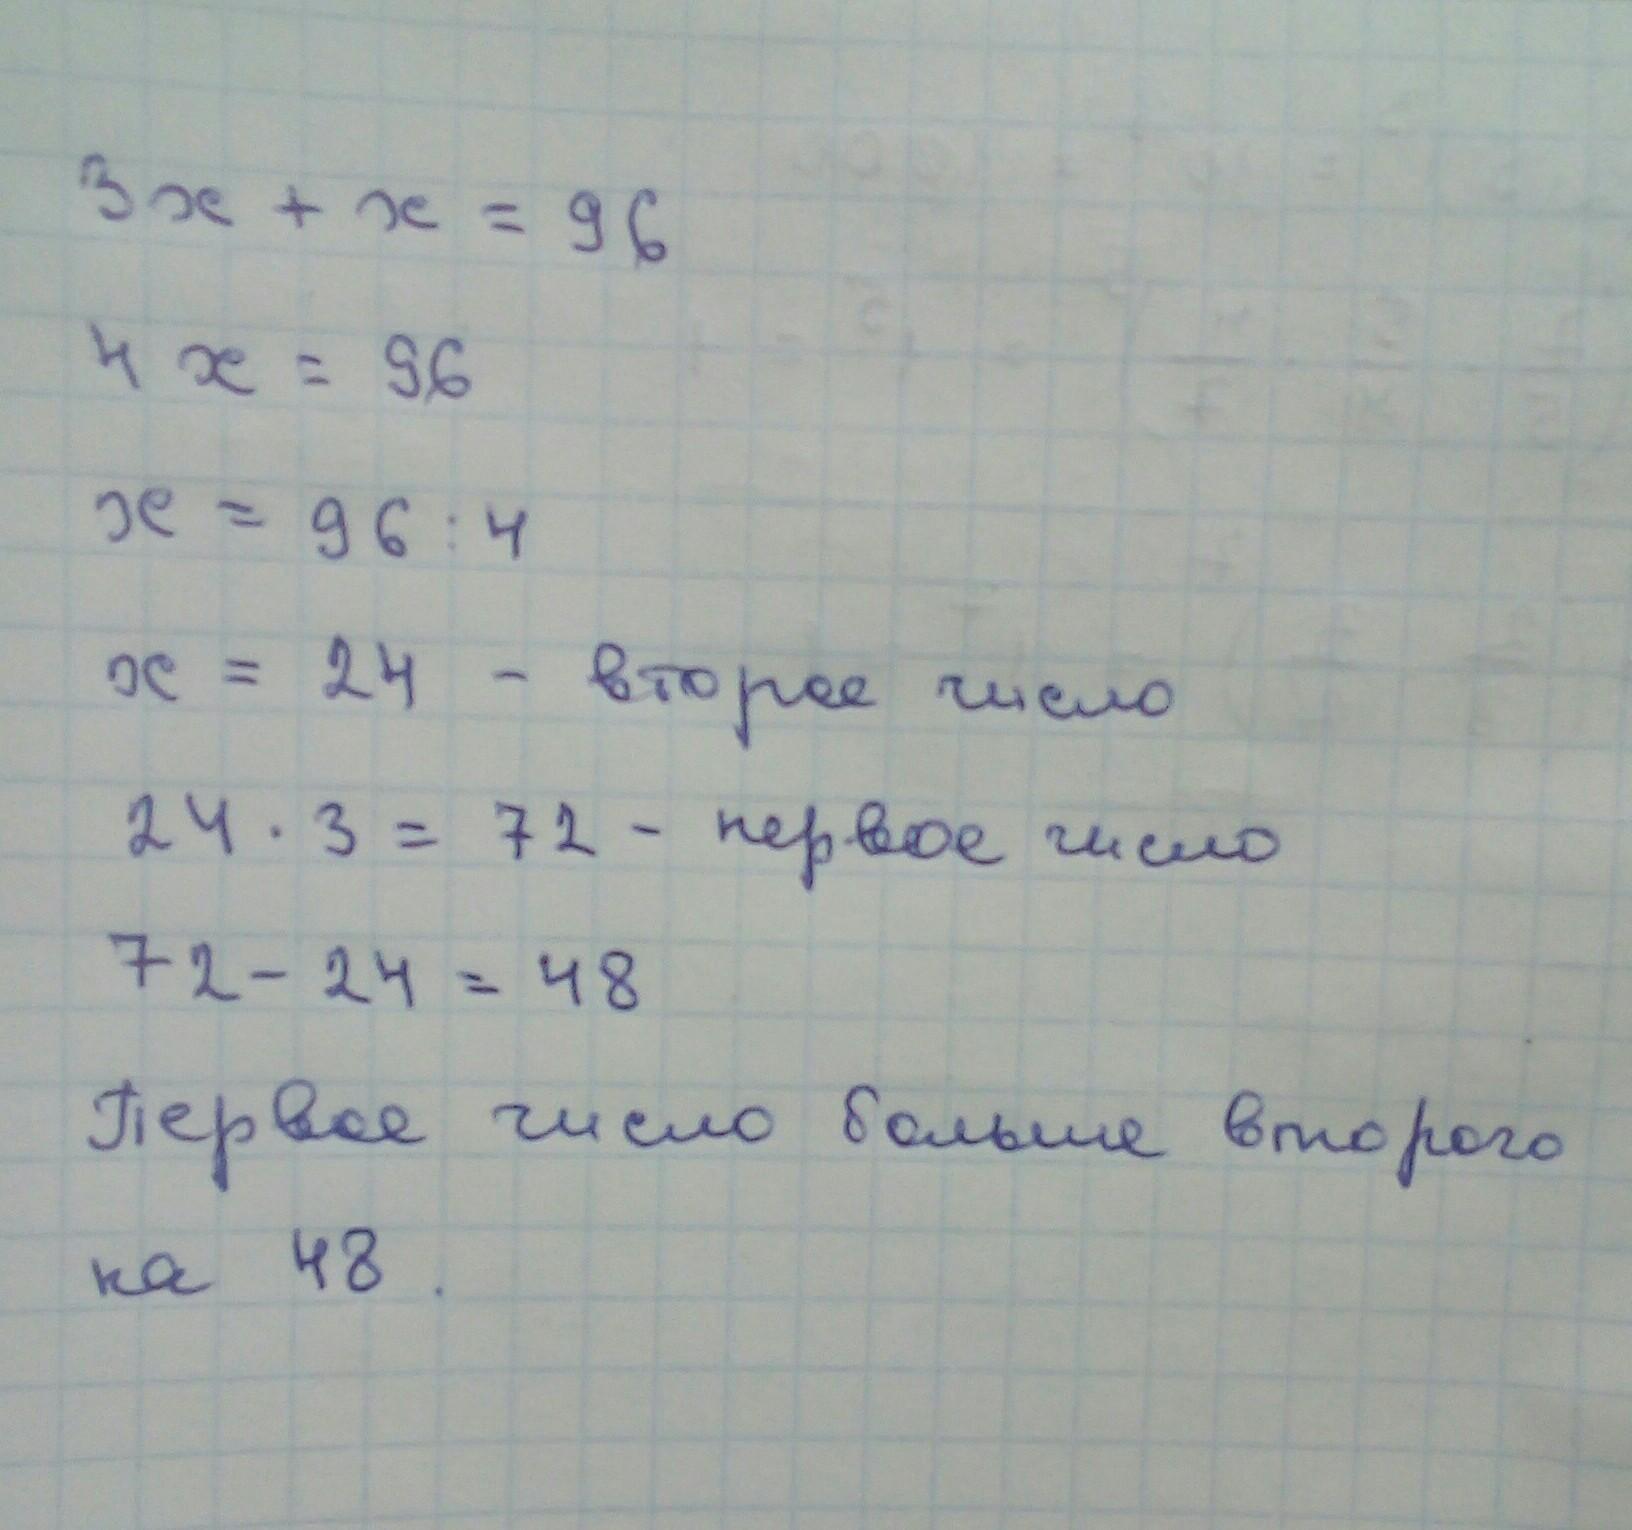 3x + x = 96
4x = 96
x = 96 : 4
x = 24 - второе число
24 · 3 = 72 - первое число
72 - 24 = 48
Первое число больше второго
на 48.